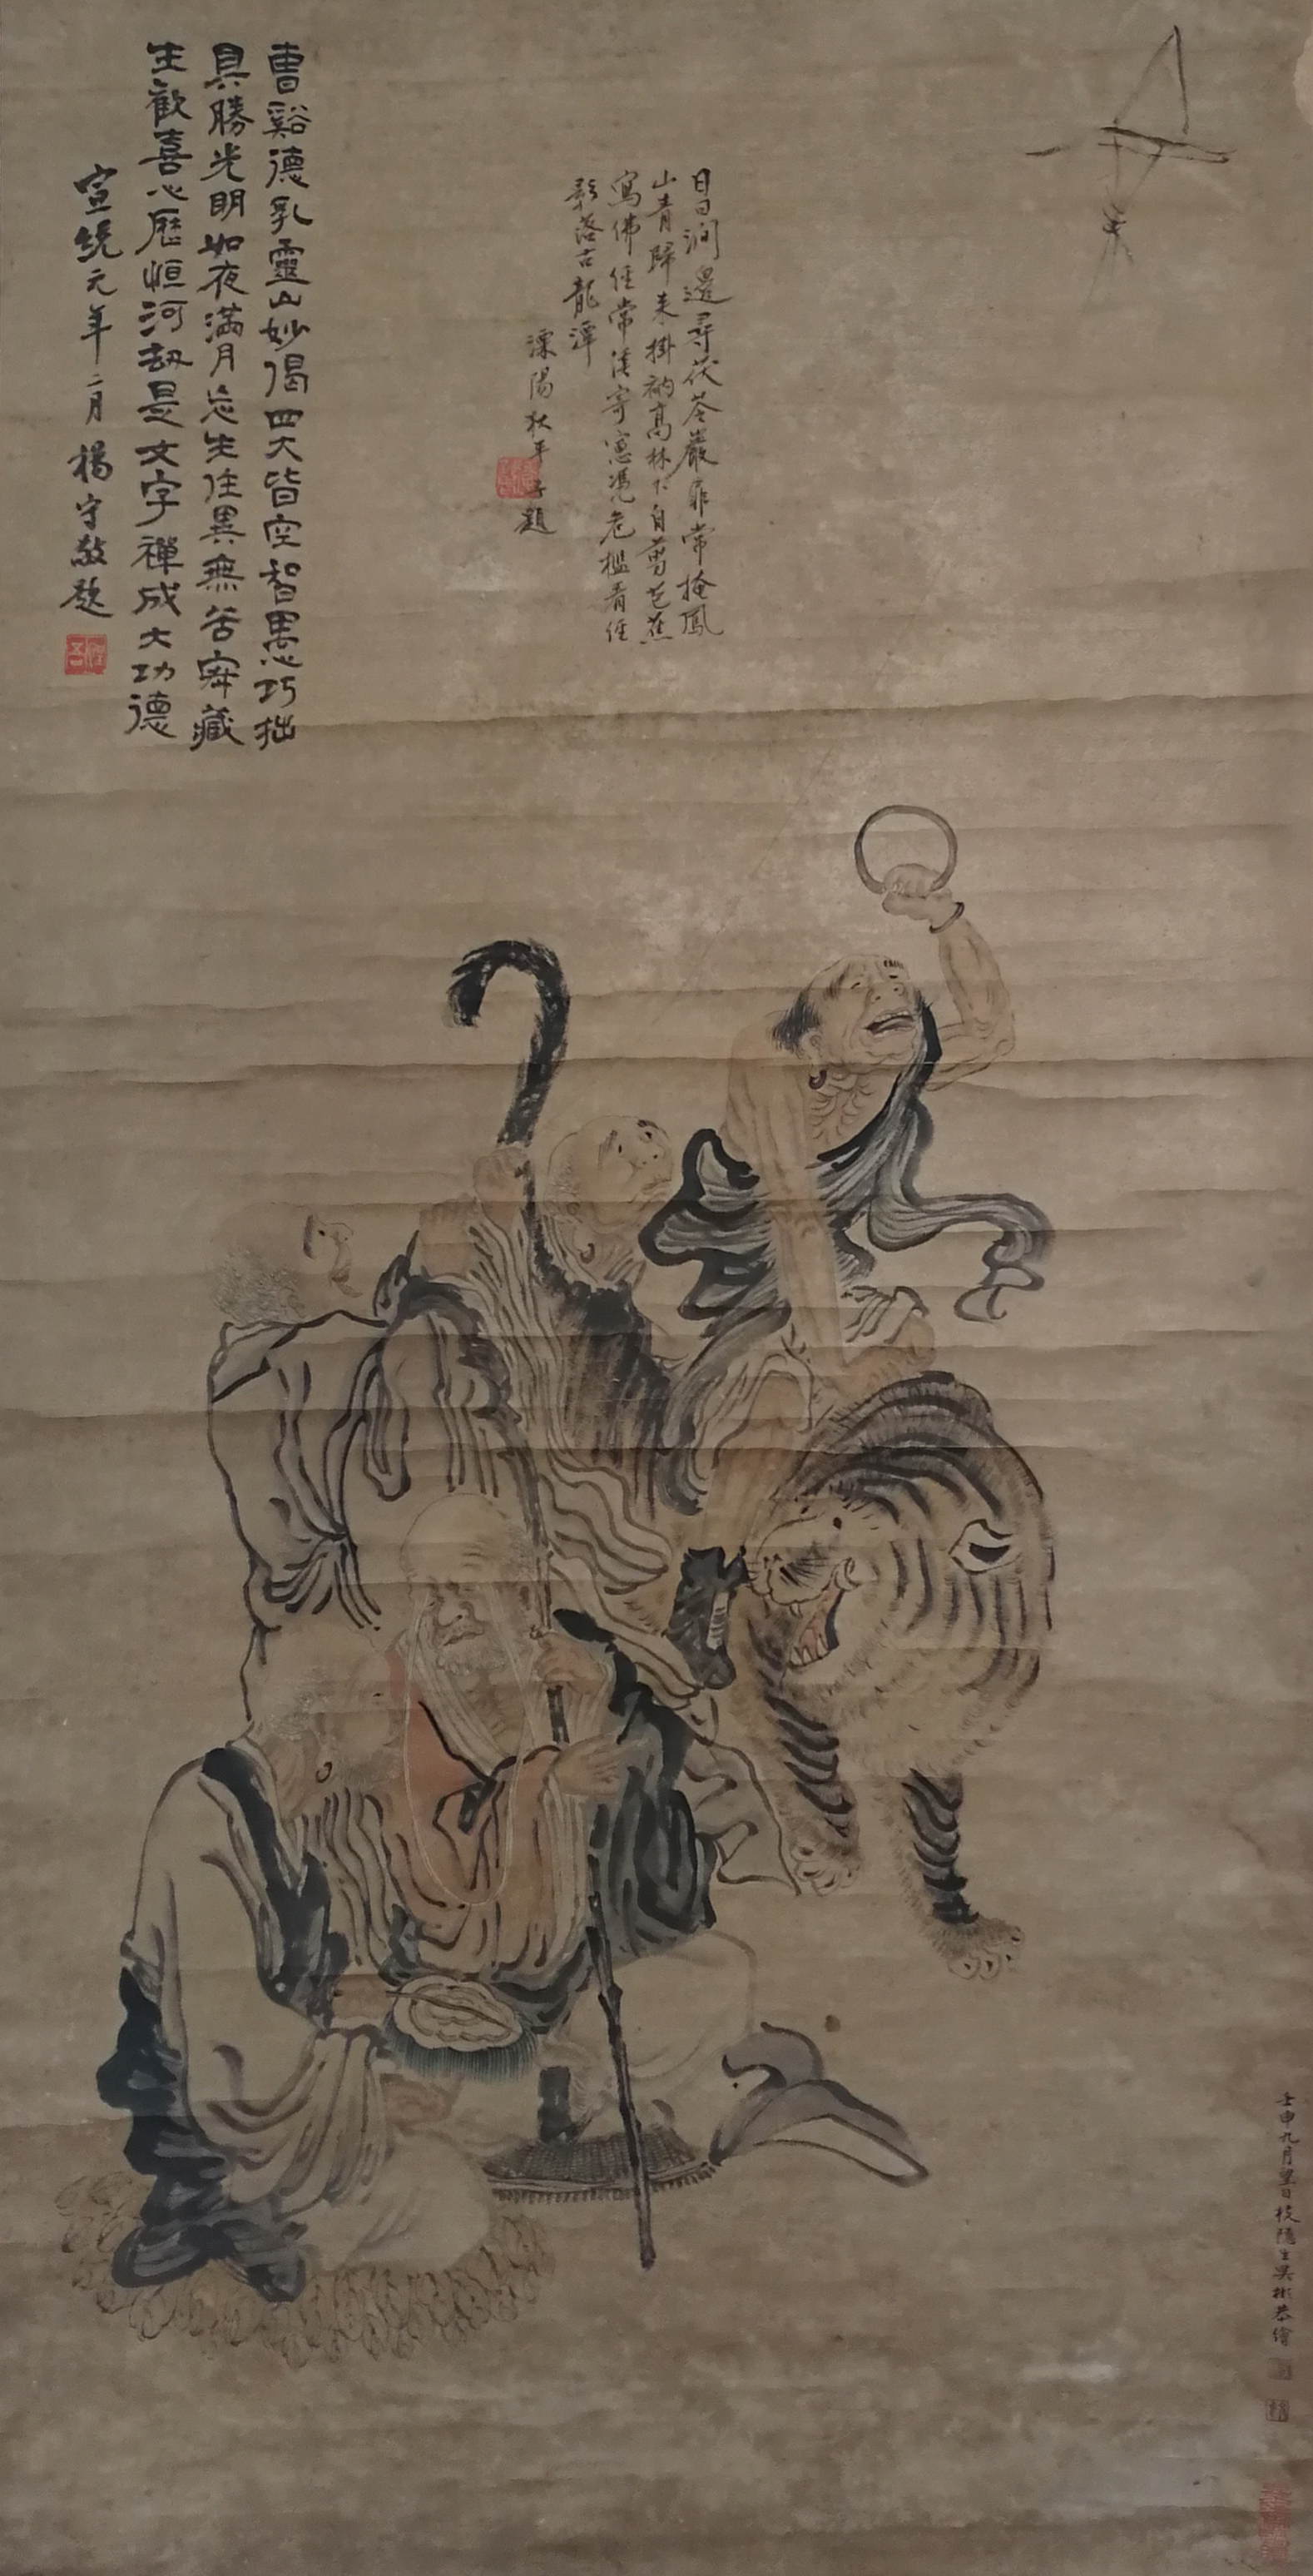 曹谿德乳靈山妙偈四大皆空智愚巧拙
具勝光明如夜滿月忘生住異無苦寂藏
生歡喜心歷恒河劫是文字禪成大功德
宣統元年二月楊守敬題
日日澗邊尋茯苓巖扉常掩鳳
山青歸來掛衲高林下自剪芭蕉
寫佛經常清寄窻凭危檻看經
影落古龍潭
溧陽狄平子題
壬申九月望日枝隱生吳彬恭繪